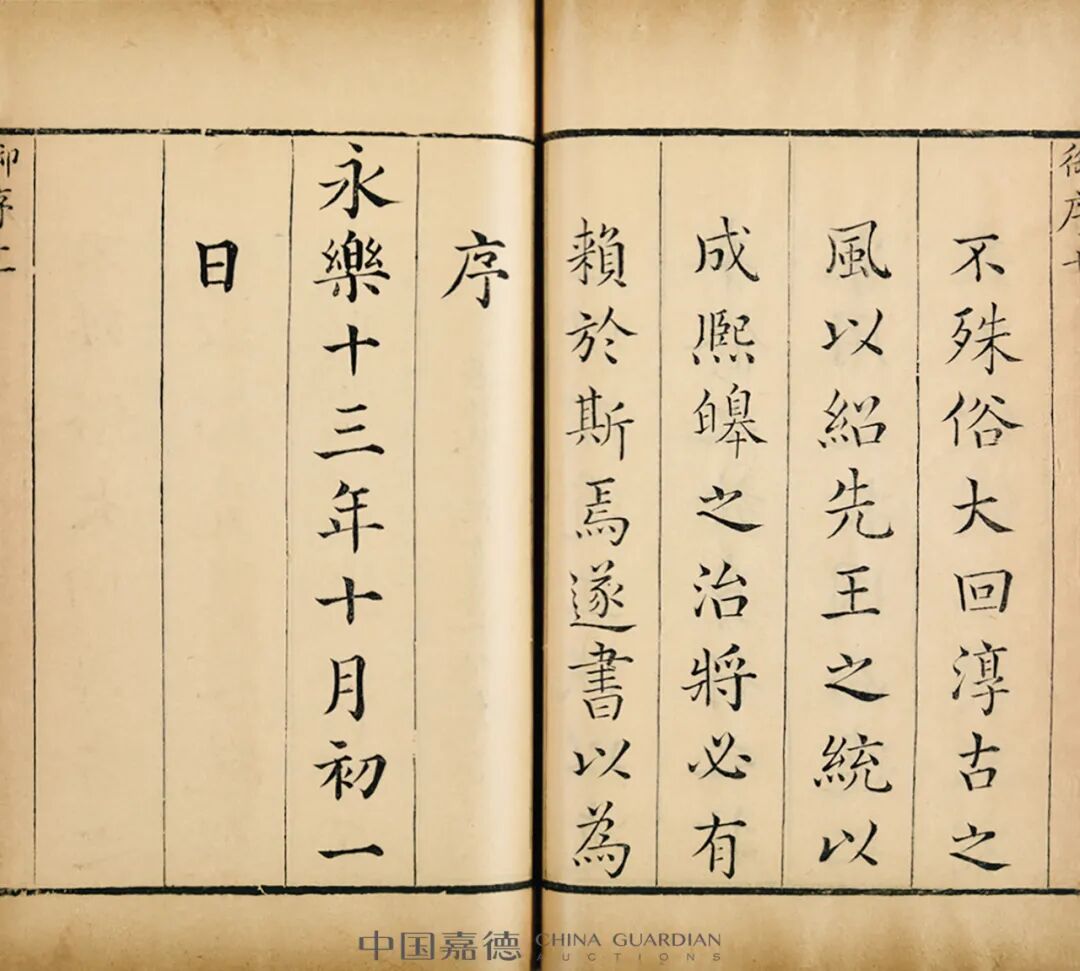 不殊俗大回淳古之
風以紹先王之統以
成熈皡之治將必有
賴於斯焉遂書以為
序
永樂十三年十月初一
日
中国嘉德 CHINA GUARDIAN
AUCTIONS